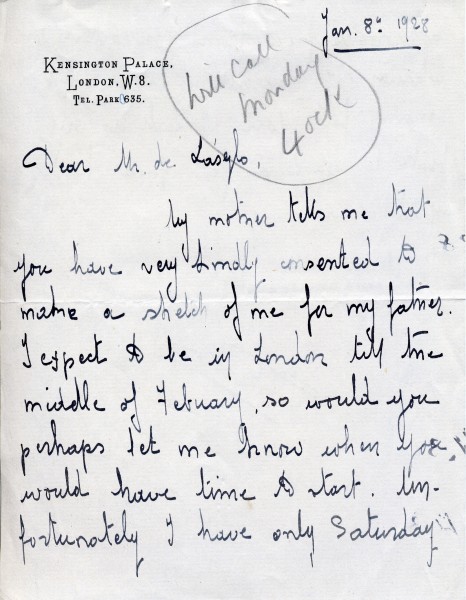 Jan. 8º 1928
KENSINGTON PALACE,
LONDON, W.8.
TEL. PARK 0635.
Will call
Monday
4 ock
Dear Mr. de László,
My mother tells me that
you have very kindly consented to
make a sketch of me for my father.
I expect to be in London till the
middle of Febuary, so would you
perhaps let me know when you
would have time to start. Un-
fortunately I have only Saturday